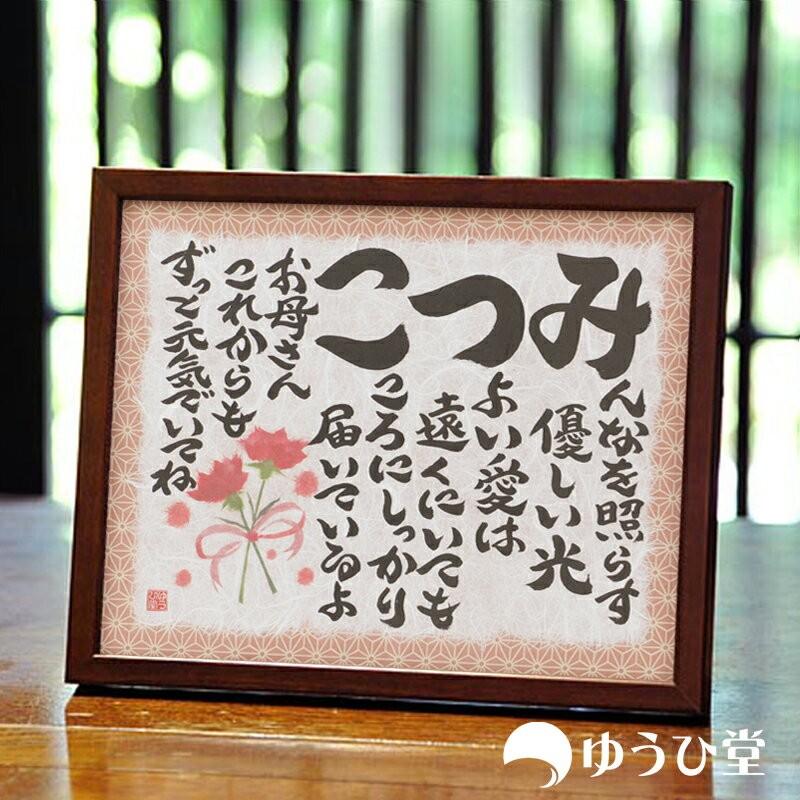 みんなを照らす
優しい光
つよい愛は
遠くにいても
こころにしっかり
届いているよ
お母さん
これからも
ずっと元気でいてね
ゆうひ堂